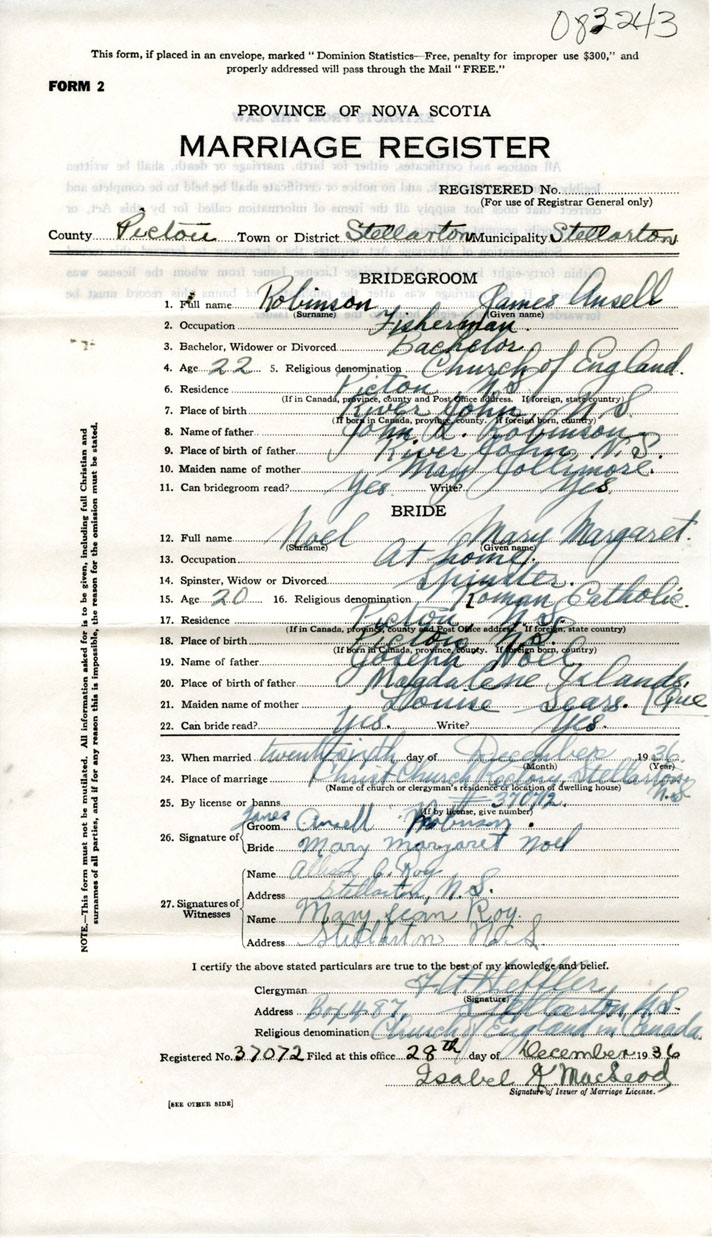 083243
This form, if placed in an envelope, marked "Dominion Statistics—Free, penalty for improper use $300," and
properly addressed will pass through the Mail "FREE."
FORM 2
PROVINCE OF NOVA SCOTIA
MARRIAGE REGISTER
REGISTERED No.
(For use of Registrar General only)
County Pictou Town or District Stellarton Municipality Stellarton
BRIDEGROOM
1. Full name Robinson James Ansell
(Surname) (Given name)
2. Occupation Fisherman.
3. Bachelor, Widower or Divorced Bachelor
4. Age 22 5. Religious denomination Church of England.
6. Residence Pictou N.S.
(If in Canada, province, county and Post Office address. If foreign, state country)
7. Place of birth River John, N.S.
(If born in Canada, province, county. If foreign born, country)
8. Name of father John R. Robinson
9. Place of birth of father River John, N.S.
10. Maiden name of mother Mary Jollymore.
11. Can bridegroom read? Yes Write? Yes
BRIDE
12. Full name Noel Mary Margaret.
(Surname) (Given name)
13. Occupation At home.
14. Spinster, Widow or Divorced Spinster.
15. Age 20 16. Religious denomination Roman Catholic.
17. Residence Pictou, N.S.
(If in Canada, province, county and Post Office address. If foreign, state country)
18. Place of birth Pictou, N.S.
(If born in Canada, province, county. If foreign born, country)
19. Name of father Joseph Noel
20. Place of birth of father Magdalene Islands,
21. Maiden name of mother Louise Sears. (Que
22. Can bride read? Yes. Write? Yes.
23. When married day of December 1936
(Month) (Year)
24. Place of marriage Christ Church Rectory, Stellarton, N.S
(Name of church or clergyman's residence or location of dwelling house)
25. By license or banns # 37072.
(If by license, give number)
26. Signature of
Groom James Ansell Robinson.
Bride Mary margaret noel
27. Signatures of Witnesses
Name Roy
Address Stellarton, N.S.
Name Mary Jean Roy.
Address Stellarton N.S
I certify the above stated particulars are true to the best of my knowledge and belief.
Clergyman
(Signature)
Address Box 487, Stellarton, N.S.
Religious denomination Church of England in Canada.
Registered No. 37072 Filed at this office 28th day of December 1936
Isabel K. MacLeod
Signature of Issuer of Marriage License.
[SEE OTHER SIDE]
NOTE.—This form must not be mutilated. All information asked for is to be given, including full Christian and
surnames of all parties, and if for any reason this is impossible, the reason for the omission must be stated.